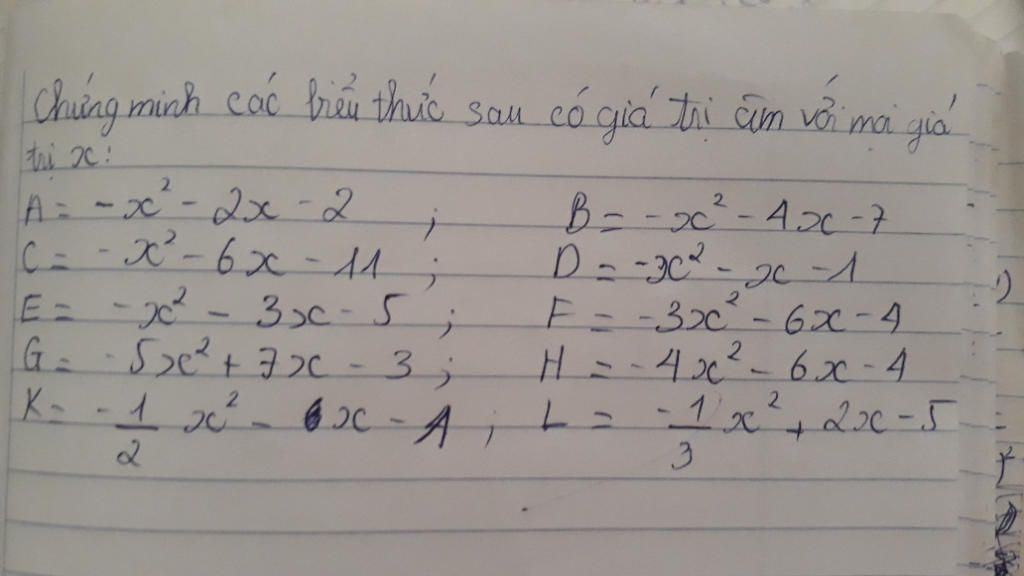 Chứng minh các biểu thức sau có giá trị âm với mọi giá
trị x:
A = -x² - 2x - 2 ; B = -x² - 4x - 7
C = -x² - 6x - 11 ; D = -x² - x - 1
E = -x² - 3x - 5 ; F = -3x² - 6x - 4
G = -5x² + 7x - 3 ; H = -4x² - 6x - 4
K = -1/2 x² - x - 1 ; L = -1/3 x² + 2x - 5